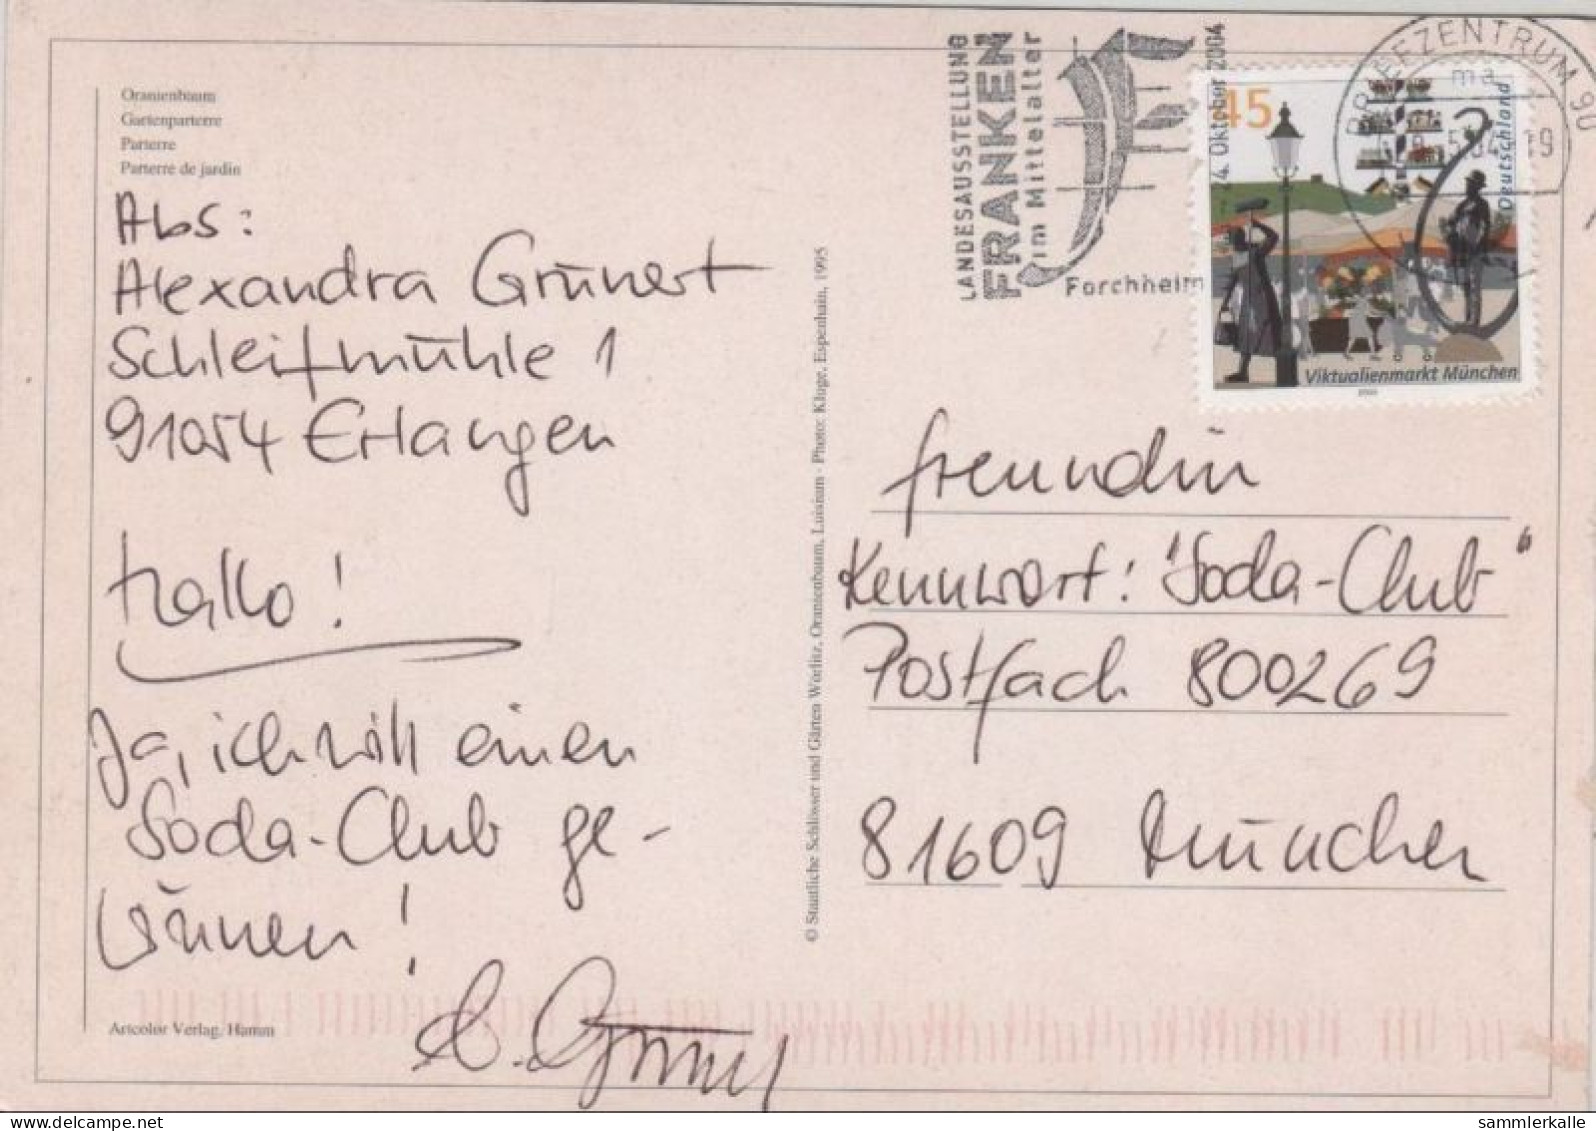 Oranienbaum
Gartenparterre
Parterre
Parterre de jardin
Abs:
Alexandra Grünert
Schleifmühle 1
91054 Erlangen
Hallo!
Ja, ich will einen
Soda-Club ge-
winnen!
A. Grünert
Artcolor Verlag, Hamm
© Staatliche Schlösser und Gärten Wörlitz, Oranienbaum, Luisium · Photo: Kluge, Espenhain, 1995
LANDESAUSSTELLUNG
FRANKEN
im Mittelalter
Forchheim
24. Oktober 2004
BRIEFZENTRUM 90
45
Deutschland
Viktualienmarkt München
freundin
Kennwort: "Soda-Club"
Postfach 800269
81609 München
sammlerkalle